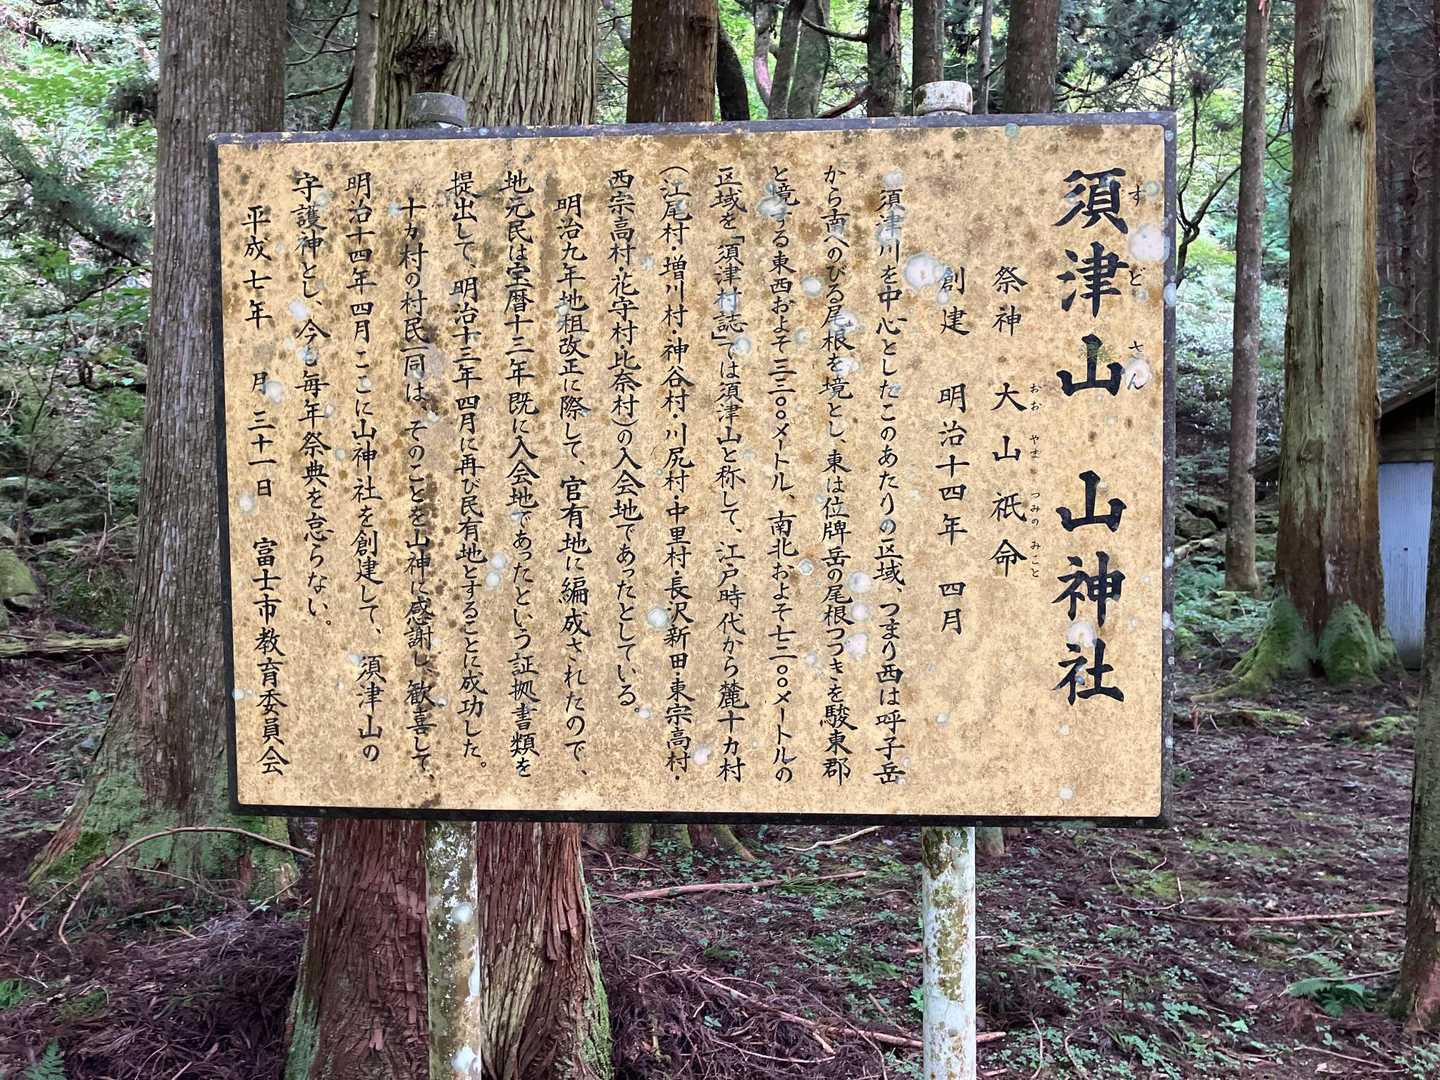 須津山 山神社
すどさん
祭神 大山祇命
おおやまつみのみこと
創建 明治十四年 四月
須津川を中心としたこのあたりの区域、つまり西は呼子岳
から南へのびる尾根を境とし、東は位牌岳の尾根つづきを駿東郡
と境する東西およそ二三〇〇メートル、南北およそ七二〇〇メートルの
区域を「須津村誌」では須津山と称して、江戸時代から麓十カ村
(江尾村・増川村・神谷村・川尻村・中里村・長沢新田・東宗高村・
西宗高村・花守村・比奈村)の入会地であったとしている。
明治九年地租改正に際して、官有地に編成されたので、
地元民は宝暦十二年既に入会地であったという証拠書類を
提出して、明治十三年四月に再び民有地とすることに成功した。
十カ村の村民一同は、そのことを山神に感謝し、歓喜して、
明治十四年四月ここに山神社を創建して、須津山の
守護神とし、今も毎年祭典を怠らない。
平成七年 月三十一日 富士市教育委員会